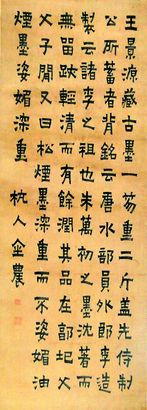 王景源藏古墨一笏重二斤盖先侍制
公所蓄者背銘云唐水部員外郎李造
製云諸李之祖也朱萬初之墨沈著而
無留跡輕清而有餘潤其品在郭圯父
父子閒又曰松煙墨深重而不姿媚油
煙墨姿媚深重 杭人金農